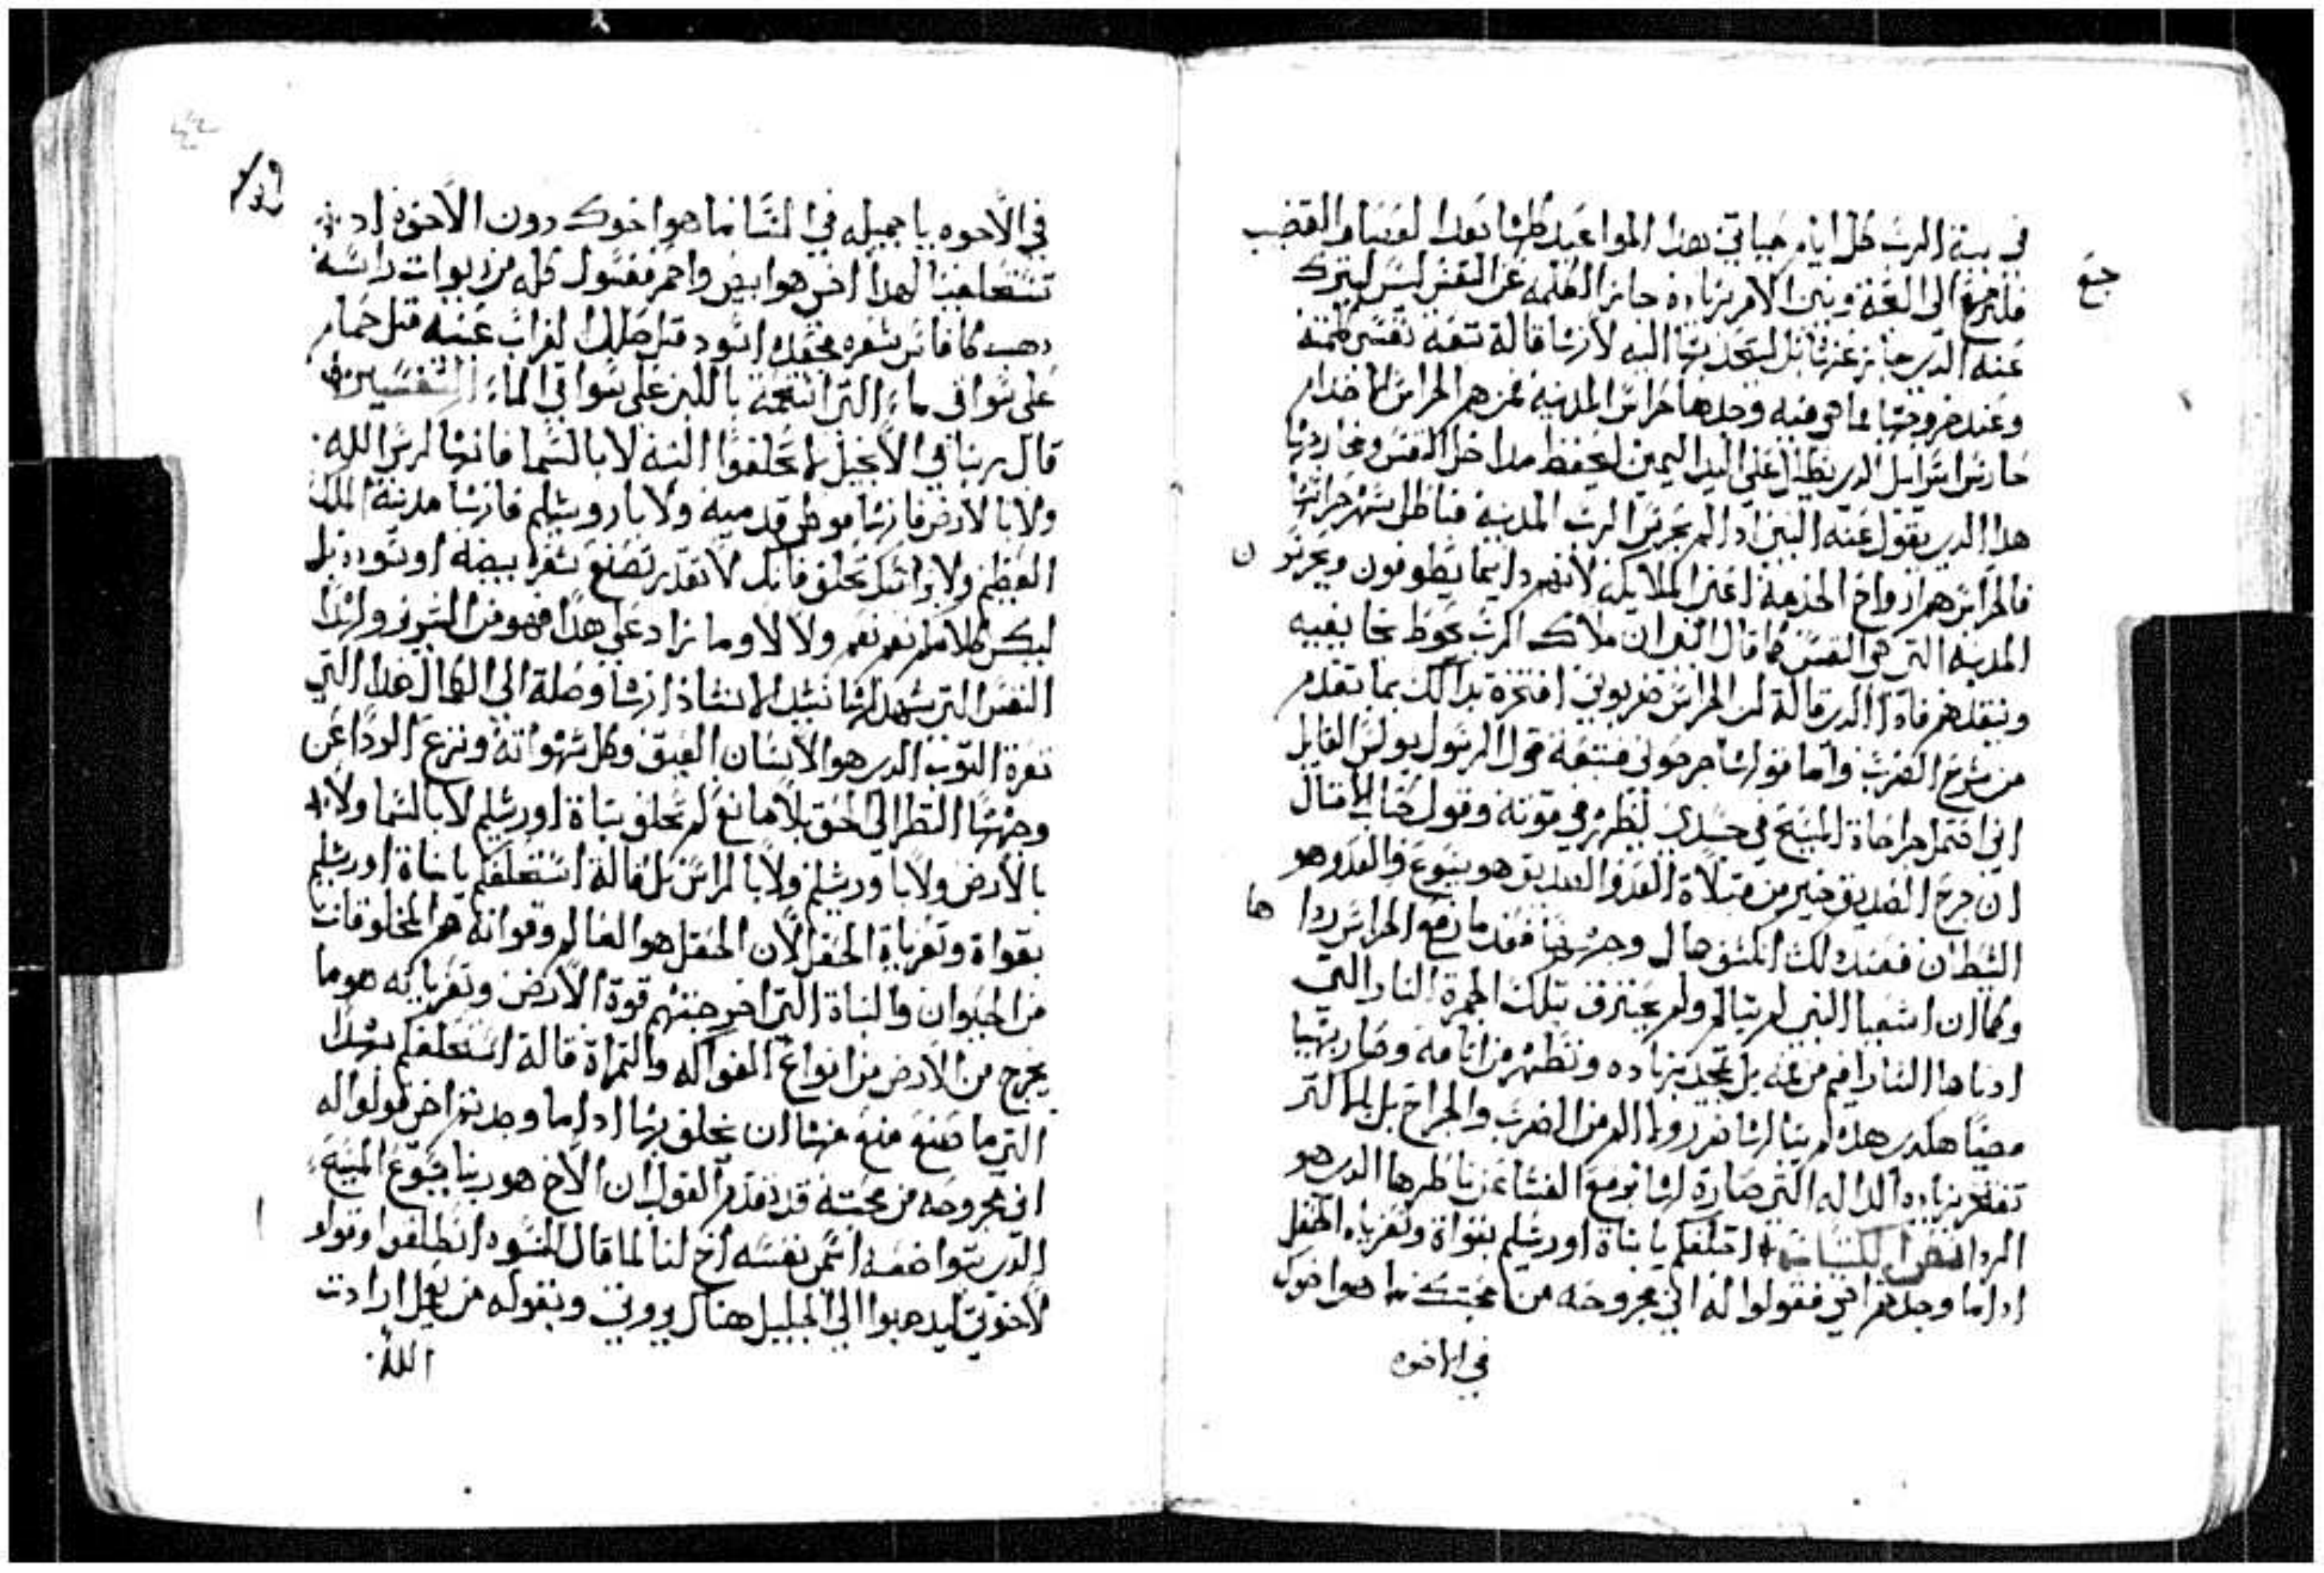 في بية الرب كل ايام حياتي هدا المواعيد كلها بعدا لعصا والقضيب
فلنرجع الى اللغة ونبين الامر بزيادة جايز الظلمه عن النفس ليس ليترك
جع
عنه الدي جايز عنها بل ليجدبها اليه لانها قالة تبعة نفسي كلمتة
وعند خروجها مما هي فيه وجدها حراس المدينه فمن هم الحراس الا خدام
حارس اسراييل الدي يظلل على اليد اليمين ليحفظ مداخل النفس ومخارجها
هدا الدي يقول عنه النبي ادا لم يحرس الرب المدينه فباطل سهر حراسها
فالحراس هم ارواح الخدمة اعني الملايكه لانهم دايما يطوفون ويحرسون
المدينه التي هي النفس كما قال النبي ان ملاك الرب يحوط بخايفيه
وينقدهم فادا الدي قالة ان الحراس ضربوني افتخرة بدالك بما تقدم
من شرح الضرب واما قولها جرحوني فتتبعة قول الرسول بولس القايل
اني احتمل جراحاة المسيح في جسدي ليظهر في موته وقول صاحب الامتال
ان جرح الصديق خير من قبلاة العدو والصديق هو يسوع والعدو هو
الشيطان فعند دلك انكشف جمال وجهها فعندما رفع الحراس رداها
وكما ان اشعيا النبي لم يتالم ولم يحترق بتلك الجمرة النار التي
ادناها السارافيم من فمه بل تمجد بزياده وتطهر من اتامه وصار بهيا
مضيا هكدي هده لم ينالها ضرر ولا الم من الضرب والجراح بل انما التي
تفتخر بزياده الداله التي صارة لها برفع الغشا عن ناظرها الدي هو
الردا استحلفكم يا بناة اورشليم بقواة وتعزياة الحقل
ادا ما وجدتم اخي فقولوا له اني مجروحه من محبتك ما هو اخوك
في الاخوه
في الاخوه يا جميله في النسا ما هو اخوك دون الاخوة اد
تستحلفينا لهدا اخي هو ابيض واحمر مغسول كله من ربوات راسه
دهب كافاس شعره مجعده اسود متل ظلال الغراب عينيه متل حمام
على سواقي ماء التي استحمة باللبن على سواقي الماء التفسير
قال ربنا في الانجيل لا تحلفوا البته لا بالسما فانها كرسي الله
ولا بالارض فانها موطى قدميه ولا باروشليم فانها مدينة الملك
العظيم ولا براسك تحلف فانك لا تقدر تصنع شعره بيضه او سوده بل
ليكن كلامكم نعم نعم ولا لا وما زاد على هدا فهو من الشرير ولهدا
النفس التي شهد لها نشيد الانشاد انها وصلة الى الكمال هدا التي
تعرة التوب الدي هو الانسان العتيق وكل شهواته ونزع الردا عن
وجهها النظر الى الحق بلا مانع لم تحلف بناة اورشليم لا بالسما ولا
بالارض ولا باورشليم ولا بالراس بل قالة استحلفكم يا بناة اورشليم
بقواة وتعزياة الحقل لان الحقل هو العالم وقواته هم المخلوقات
من الحيوان والنباة التي اخرجتهم قوة الارض وتعزياته هو ما
يخرج من الارض من انواع الفواكه والتمراة قالة استحلفكم بهدا
التي ما صنع منع منها ان يحلف بها ادا ما وجدتم اخي قولوا له
اني مجروحه من محبته قد تقدم القول ان الاخ هو ربنا يسوع المسيح
الدي بتواضعه اسمى نفسه اخ لنا لما قال للنسوه انطلقوا وقولوا
لاخوتي ليدهبوا الى الجليل هناك يروني وبقوله من يعمل ارادت
الله